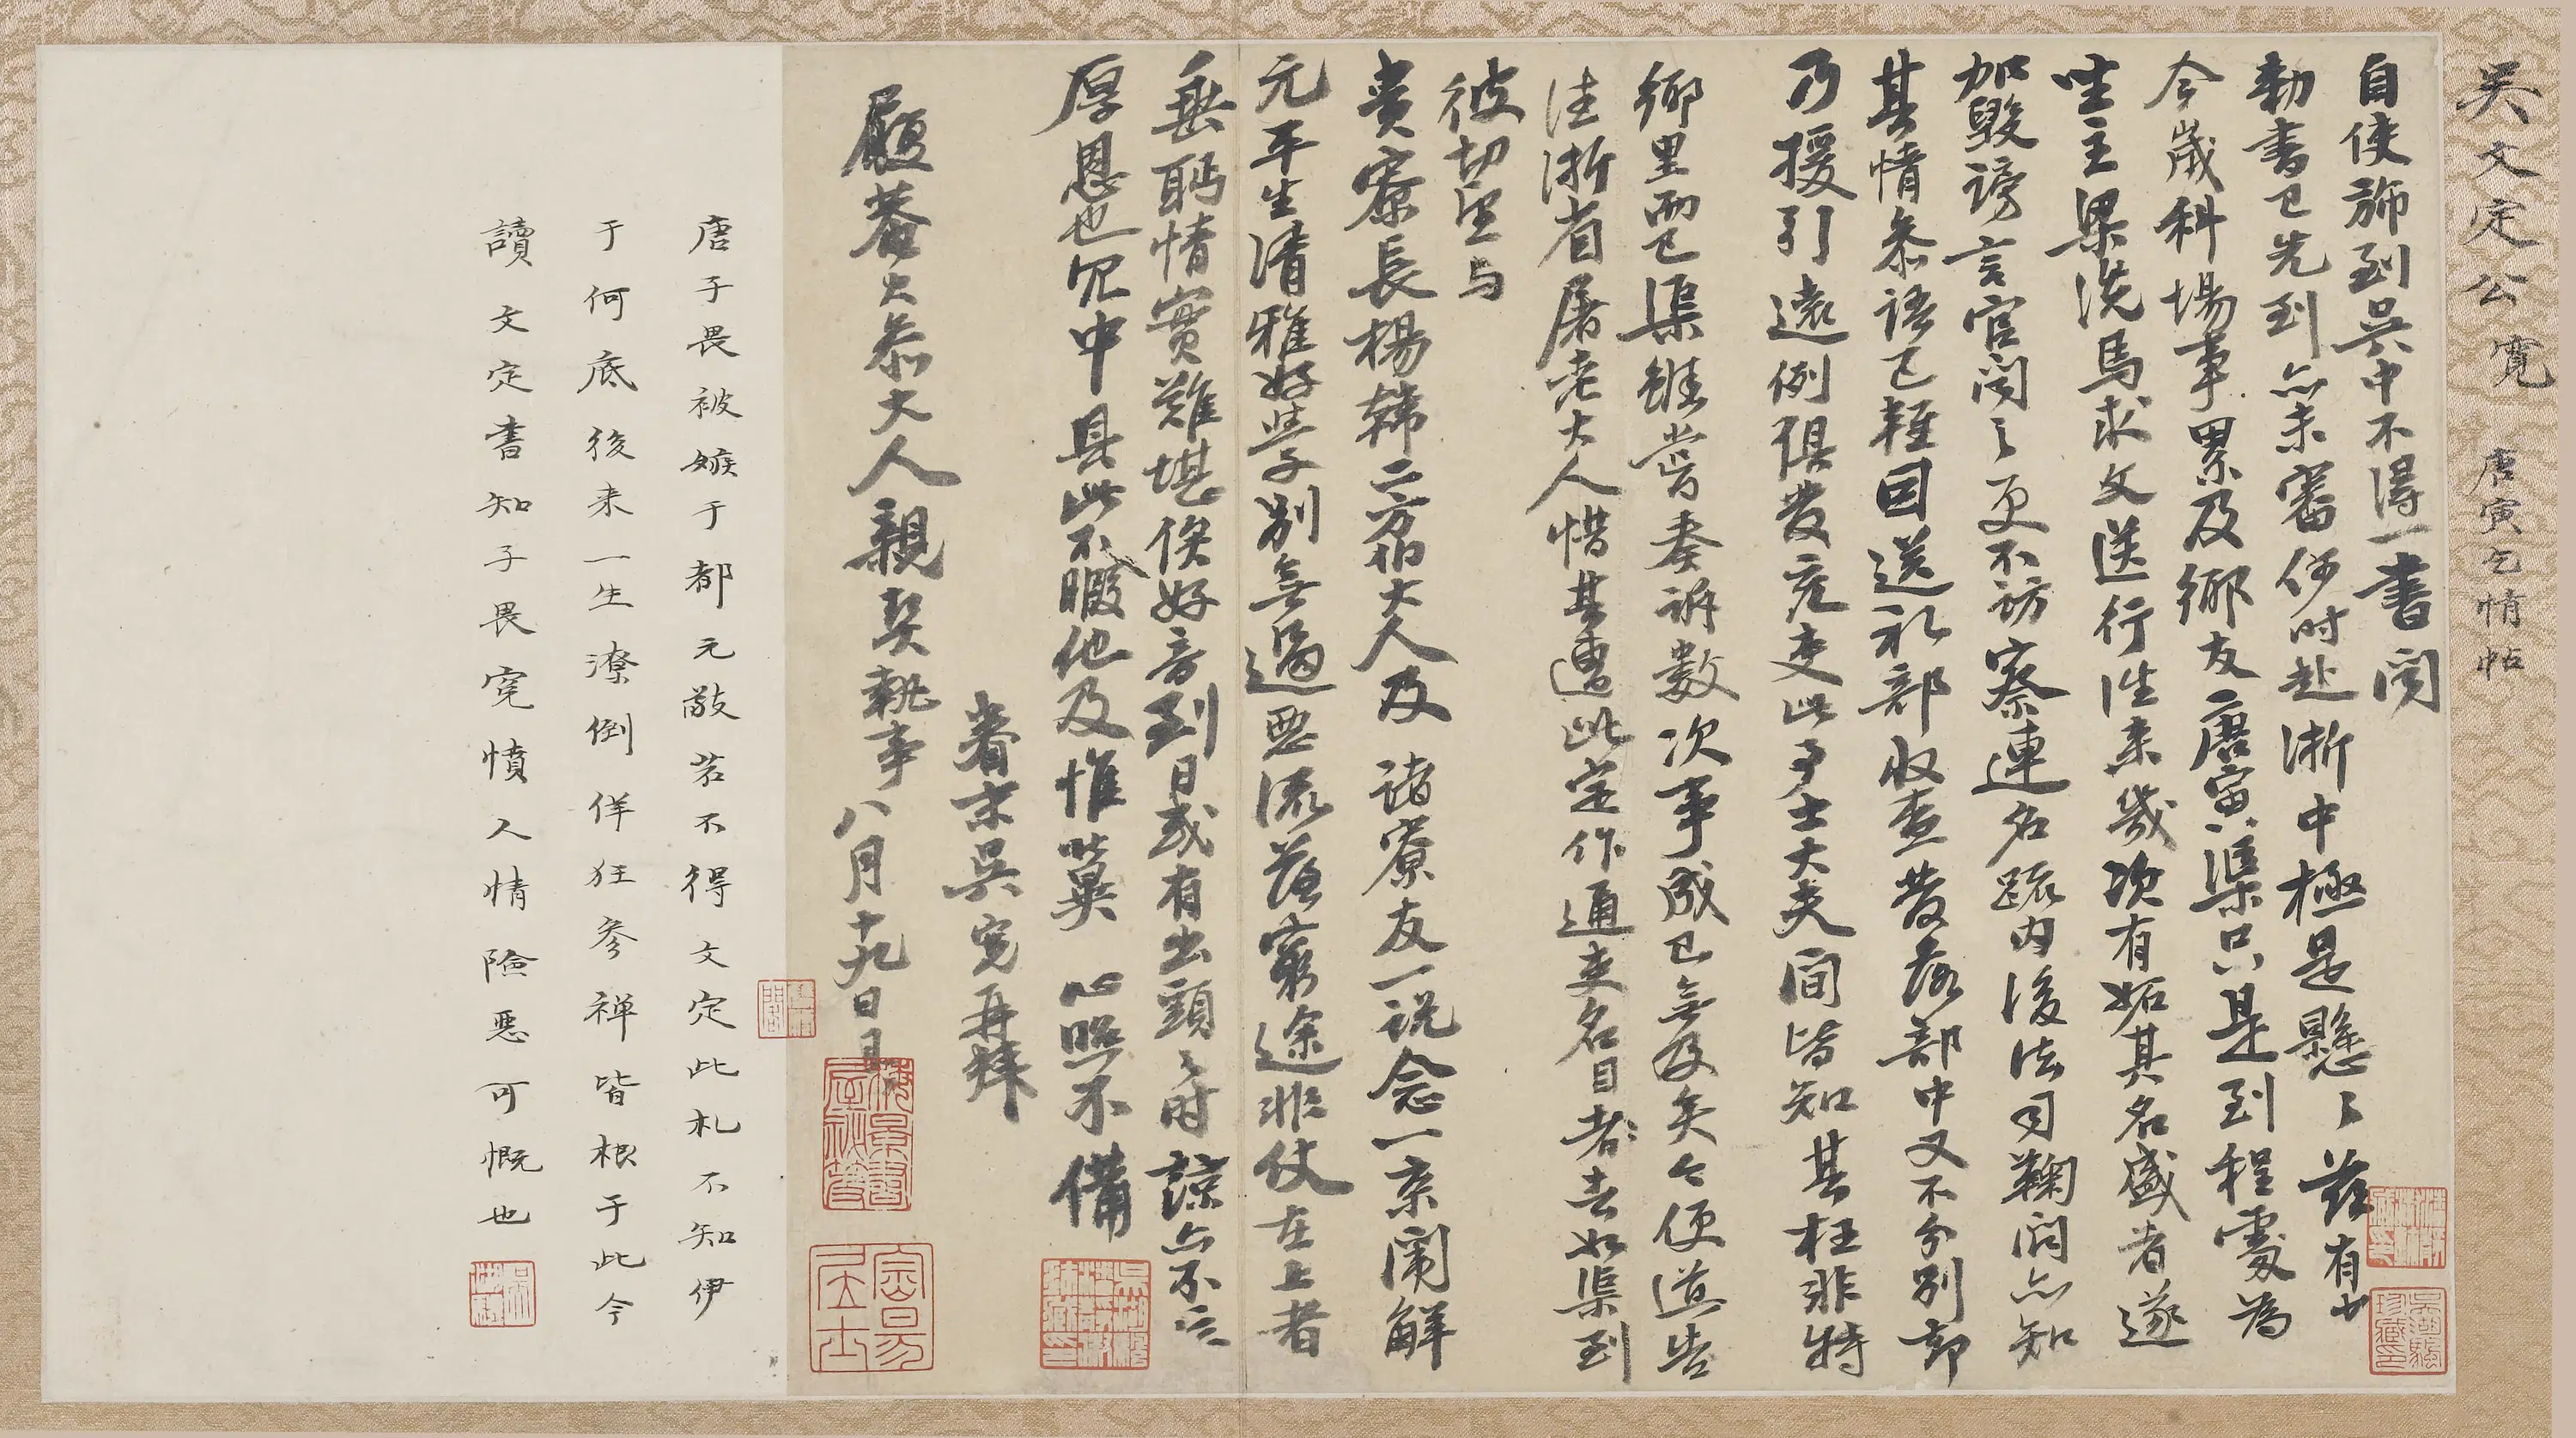 吳文定公寬 唐寅乞情帖
自使旆到吳中不得一書聞
勅書已先到亦未審何時赴浙中極是懸〻茲有少
今歲科場事累及鄉友唐寅渠只是到程處為
坐主梁洗馬求文送行往來幾次有妬其名盛者遂
加毀謗言官聞之更不訪察連名疏內後法司鞫問亦知
其情參語已輕回送禮部收查發落部中又不分別卻
乃援引遠例俱發充吏此事士大夫間皆知其枉非特
鄉里而已渠雖嘗奏訴數次事成已無及矣今便道告
往浙省屠老大人惜其遭此定作通吏名目者去如渠到
彼切望與
貴寮長楊韓二方伯大人及諸寮友一說念一京闈解
元平生清雅好學別無過惡流落窮途非仗在上者
垂眄情實難堪俟好音到日或有出頭之時諒亦不忘
厚恩也冗中具此不暇他及惟冀 心照不備
眷末吳寬再拜
履菴大參大人親契執事 八月十九日具
唐子畏被嫉于都元敬若不得文定此札不知伊
于何底後來一生潦倒佯狂參禪皆根于此今
讀文定書知子畏寃憤人情險惡可慨也